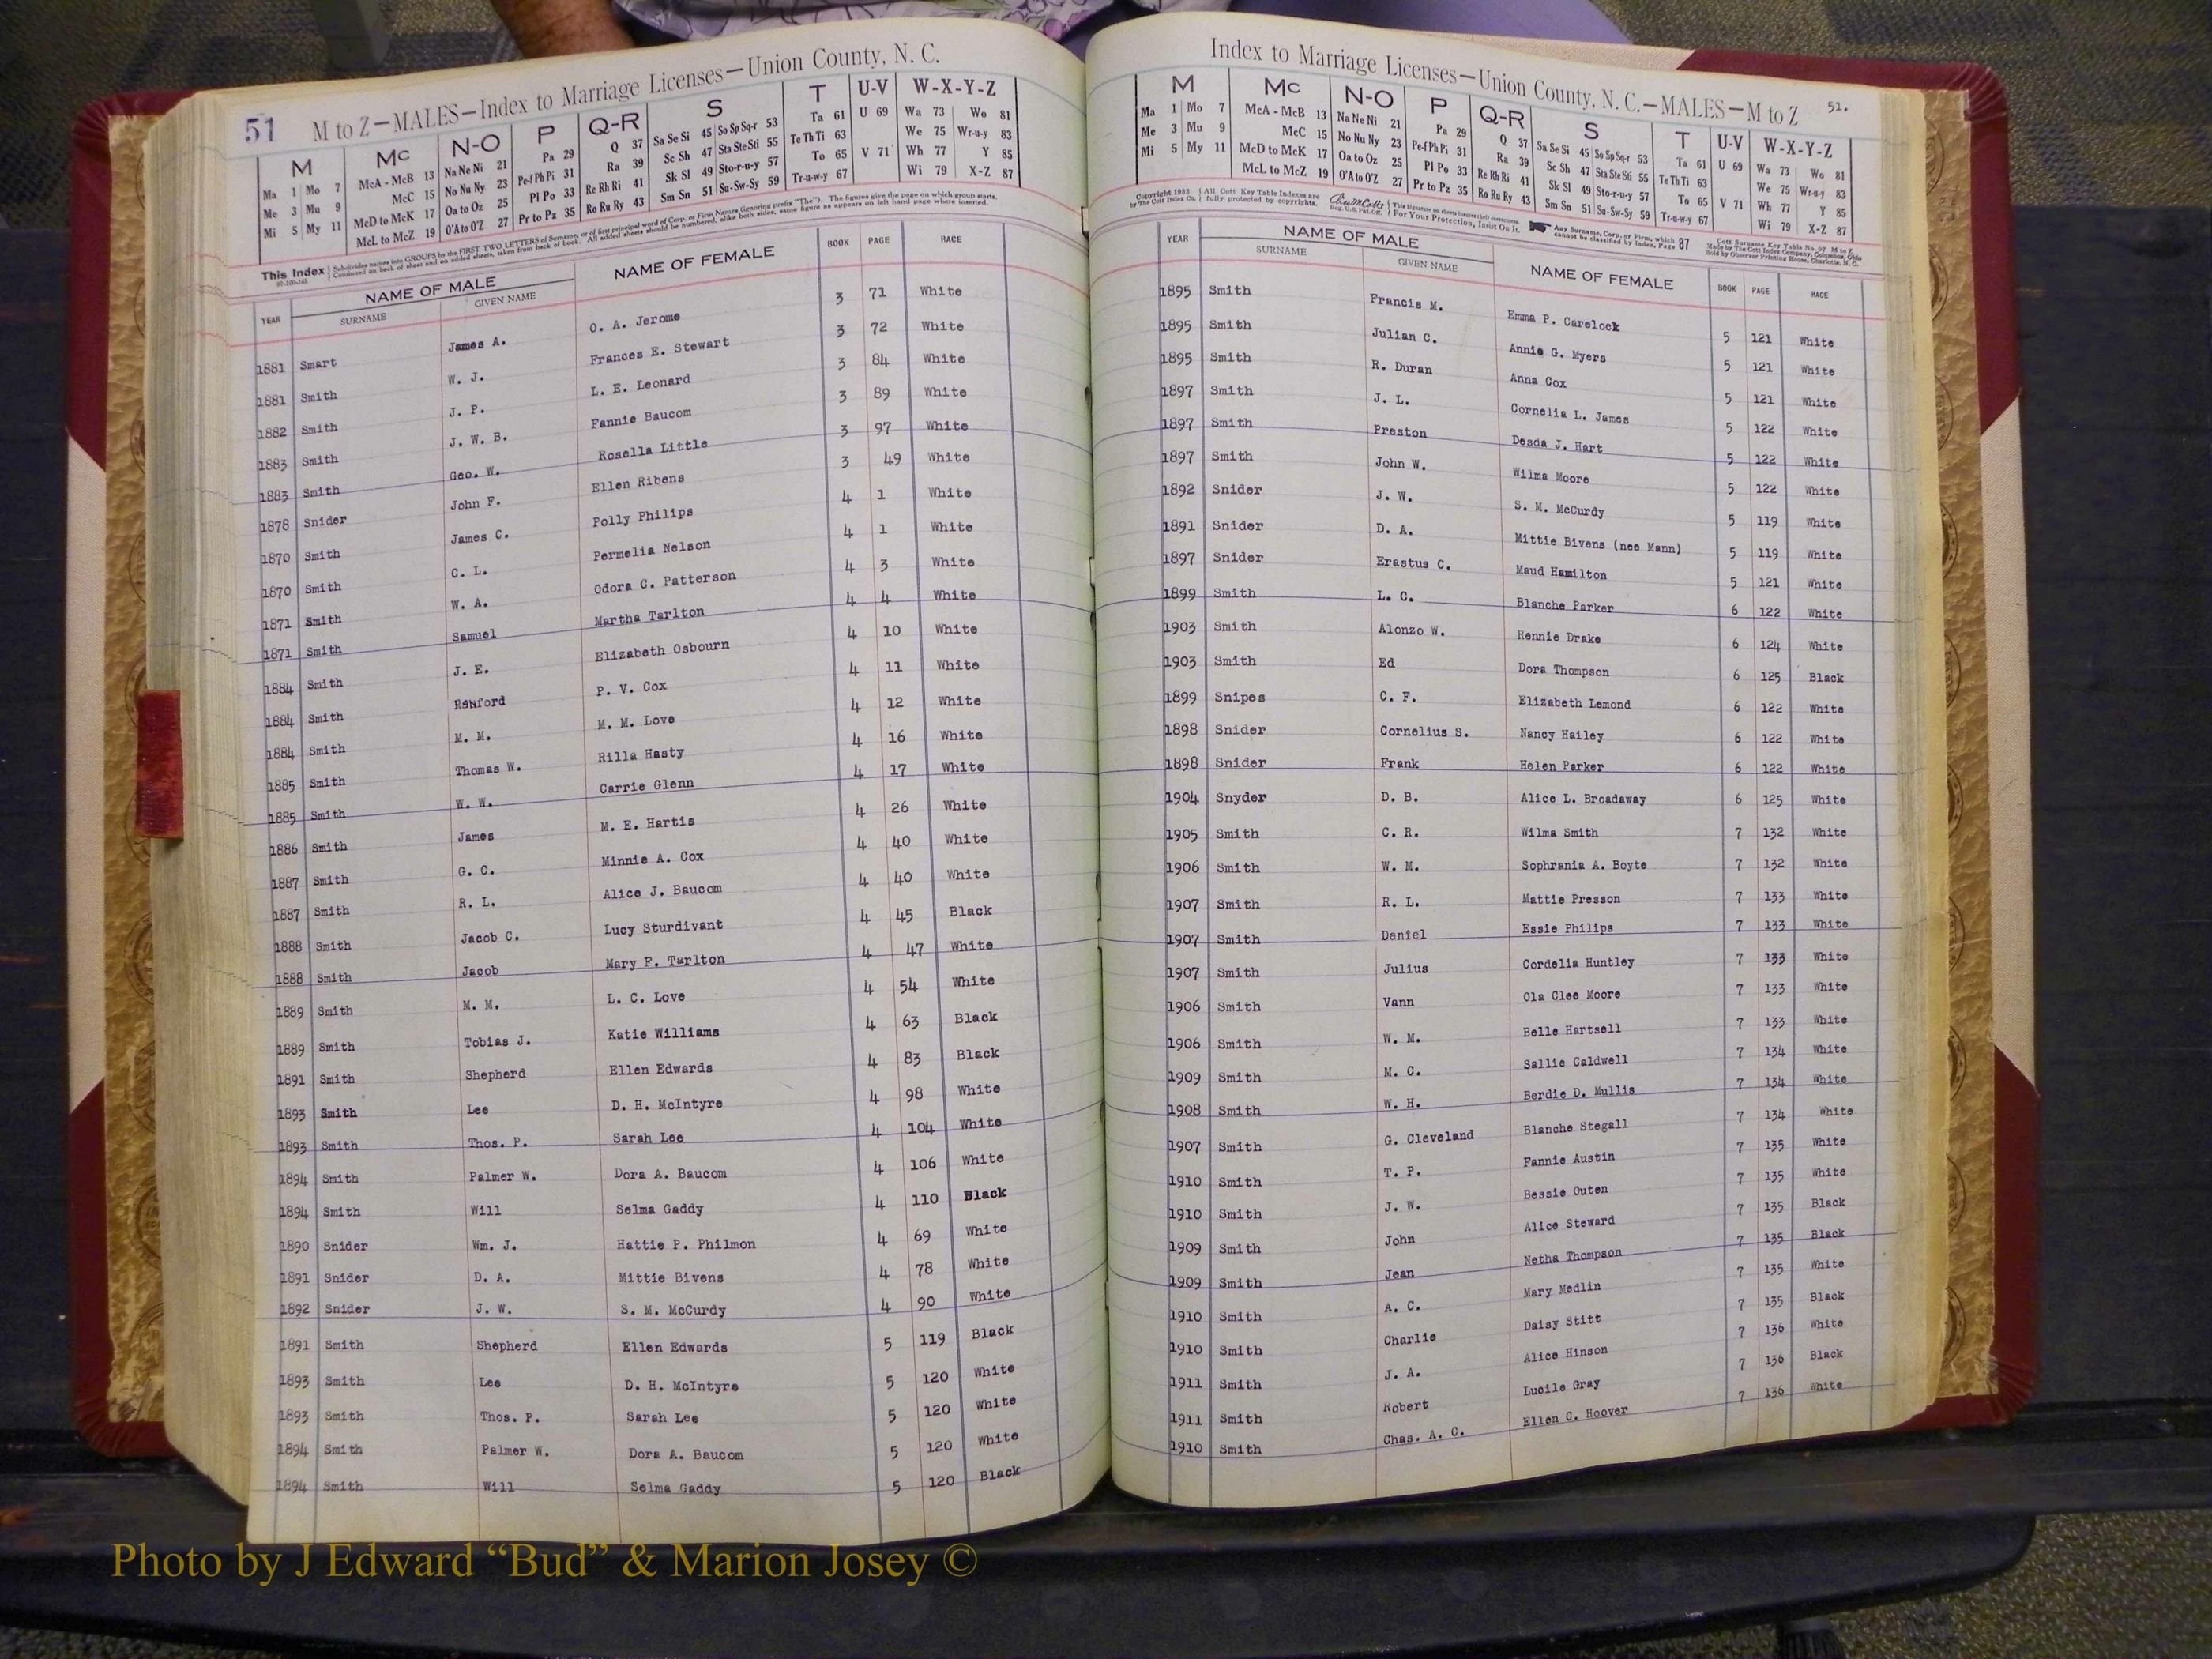 51
M to Z—MALES—Index to Marriage Licenses—Union County, N. C.
M Mc N-O P Q-R S T U-V W-X-Y-Z
Ma 1 Mo 7 McA - McB 13 Na Ne Ni 21 Pa 29 Q 37 Sa Se Si 45 So Sp Sq-r 53 Ta 61 U 69 Wa 73 Wo 81
Me 3 Mu 9 McC 15 No Nu Ny 23 Pe-f Ph Pi 31 Ra 39 Sc Sh 47 Sta Ste Sti 55 Te Th Ti 63 We 75 Wr-u-y 83
Mi 5 My 11 McD to McK 17 Oa to Oz 25 Pl Po 33 Re Rh Ri 41 Sk Sl 49 Sto-r-u-y 57 To 65 V 71 Wh 77 Y 85
McL to McZ 19 O'A to O'Z 27 Pr to Pz 35 Ro Ru Ry 43 Sm Sn 51 Su-Sw-Sy 59 Tr-u-w-y 67 Wi 79 X-Z 87
This Index Subdivides names into GROUPS by the FIRST TWO LETTERS of Surname, or of first principal word of Corp. or Firm Names (ignoring prefix "The"). The figures give the page on which group starts.
Continued on back of sheet and on added sheets, taken from back of book. All added sheets should be numbered, alike both sides, same figure as appears on left hand page where inserted.
YEAR NAME OF MALE NAME OF FEMALE BOOK PAGE RACE
SURNAME GIVEN NAME
1881 Smart James A. O. A. Jerome 3 71 White
1881 Smith W. J. Frances E. Stewart 3 72 White
1882 Smith J. P. L. E. Leonard 3 84 White
1883 Smith J. W. B. Fannie Baucom 3 89 White
1883 Smith Geo. W. Rosella Little 3 97 White
1878 Snider John F. Ellen Ribens 3 49 White
1870 Smith James C. Polly Philips 4 1 White
1870 Smith C. L. Permelia Nelson 4 1 White
1871 Smith W. A. Odora C. Patterson 4 3 White
1871 Smith Samuel Martha Tarlton 4 4 White
1884 Smith J. E. Elizabeth Osbourn 4 10 White
1884 Smith Ranford P. V. Cox 4 11 White
1884 Smith M. M. M. M. Love 4 12 White
1885 Smith Thomas W. Rilla Hasty 4 16 White
1885 Smith W. W. Carrie Glenn 4 17 White
1886 Smith James M. E. Hartis 4 26 White
1887 Smith G. C. Minnie A. Cox 4 40 White
1887 Smith R. L. Alice J. Baucom 4 40 White
1888 Smith Jacob C. Lucy Sturdivant 4 45 Black
1888 Smith Jacob Mary F. Tarlton 4 47 White
1889 Smith M. M. L. C. Love 4 54 White
1889 Smith Tobias J. Katie Williams 4 63 Black
1891 Smith Shepherd Ellen Edwards 4 83 Black
1893 Smith Lee D. H. McIntyre 4 98 White
1893 Smith Thos. P. Sarah Lee 4 104 White
1894 Smith Palmer W. Dora A. Baucom 4 106 White
1894 Smith Will Selma Gaddy 4 110 Black
1890 Snider Wm. J. Hattie P. Philmon 4 69 White
1891 Snider D. A. Mittie Bivens 4 78 White
1892 Snider J. W. S. M. McCurdy 4 90 White
1891 Smith Shepherd Ellen Edwards 5 119 Black
1893 Smith Lee D. H. McIntyre 5 120 White
1893 Smith Thos. P. Sarah Lee 5 120 White
1894 Smith Palmer W. Dora A. Baucom 5 120 White
1894 Smith Will Selma Gaddy 5 120 Black
Index to Marriage Licenses—Union County, N. C.—MALES—M to Z 51.
M Mc N-O P Q-R S T U-V W-X-Y-Z
Ma 1 Mo 7 McA - McB 13 Na Ne Ni 21 Pa 29 Q 37 Sa Se Si 45 So Sp Sq-r 53 Ta 61 U 69 Wa 73 Wo 81
Me 3 Mu 9 McC 15 No Nu Ny 23 Pe-f Ph Pi 31 Ra 39 Sc Sh 47 Sta Ste Sti 55 Te Th Ti 63 We 75 Wr-u-y 83
Mi 5 My 11 McD to McK 17 Oa to Oz 25 Pl Po 33 Re Rh Ri 41 Sk Sl 49 Sto-r-u-y 57 To 65 V 71 Wh 77 Y 85
McL to McZ 19 O'A to O'Z 27 Pr to Pz 35 Ro Ru Ry 43 Sm Sn 51 Su-Sw-Sy 59 Tr-u-w-y 67 Wi 79 X-Z 87
Copyright 1932 All Cott Key Table Indexes are This signature on sheets insures their correctness. Any Surname, Corp. or Firm, which Cott Surname Key Table No. 97 M to Z
by The Cott Index Co. fully protected by copyrights. Reg. U.S. Pat. Off. For Your Protection, Insist On It. cannot be classified by Index, Page 87 Made by The Cott Index Company, Columbus, Ohio
Sold by Observer Printing House, Charlotte, N. C.
YEAR NAME OF MALE NAME OF FEMALE BOOK PAGE RACE
SURNAME GIVEN NAME
1895 Smith Francis M. Emma P. Carelock 5 121 White
1895 Smith Julian C. Annie G. Myers 5 121 White
1895 Smith R. Duran Anna Cox 5 121 White
1897 Smith J. L. Cornelia L. James 5 122 White
1897 Smith Preston Desda J. Hart 5 122 White
1897 Smith John W. Wilma Moore 5 122 White
1892 Snider J. W. S. M. McCurdy 5 119 White
1891 Snider D. A. Mittie Bivens (nee Mann) 5 119 White
1897 Snider Erastus C. Maud Hamilton 5 121 White
1899 Smith L. C. Blanche Parker 6 122 White
1903 Smith Alonzo W. Hennie Drake 6 124 White
1903 Smith Ed Dora Thompson 6 125 Black
1899 Snipes C. F. Elizabeth Lemond 6 122 White
1898 Snider Cornelius S. Nancy Hailey 6 122 White
1898 Snider Frank Helen Parker 6 122 White
1904 Snyder D. B. Alice L. Broadaway 6 125 White
1905 Smith C. R. Wilma Smith 7 132 White
1906 Smith W. M. Sophrania A. Boyte 7 132 White
1907 Smith R. L. Mattie Presson 7 133 White
1907 Smith Daniel Essie Philips 7 133 White
1907 Smith Julius Cordelia Huntley 7 133 White
1906 Smith Vann Ola Clee Moore 7 133 White
1906 Smith W. M. Belle Hartsell 7 133 White
1909 Smith M. C. Sallie Caldwell 7 134 White
1908 Smith W. H. Berdie D. Mullis 7 134 White
1907 Smith G. Cleveland Blanche Stegall 7 134 White
1910 Smith T. P. Fannie Austin 7 135 White
1910 Smith J. W. Bessie Outen 7 135 White
1909 Smith John Alice Steward 7 135 Black
1909 Smith Jean Netha Thompson 7 135 Black
1910 Smith A. C. Mary Medlin 7 135 White
1910 Smith Charlie Daisy Stitt 7 135 Black
1911 Smith J. A. Alice Hinson 7 136 White
1911 Smith Robert Lucile Gray 7 136 Black
1910 Smith Chas. A. C. Ellen C. Hoover 7 136 White
Photo by J Edward “Bud” & Marion Josey ©